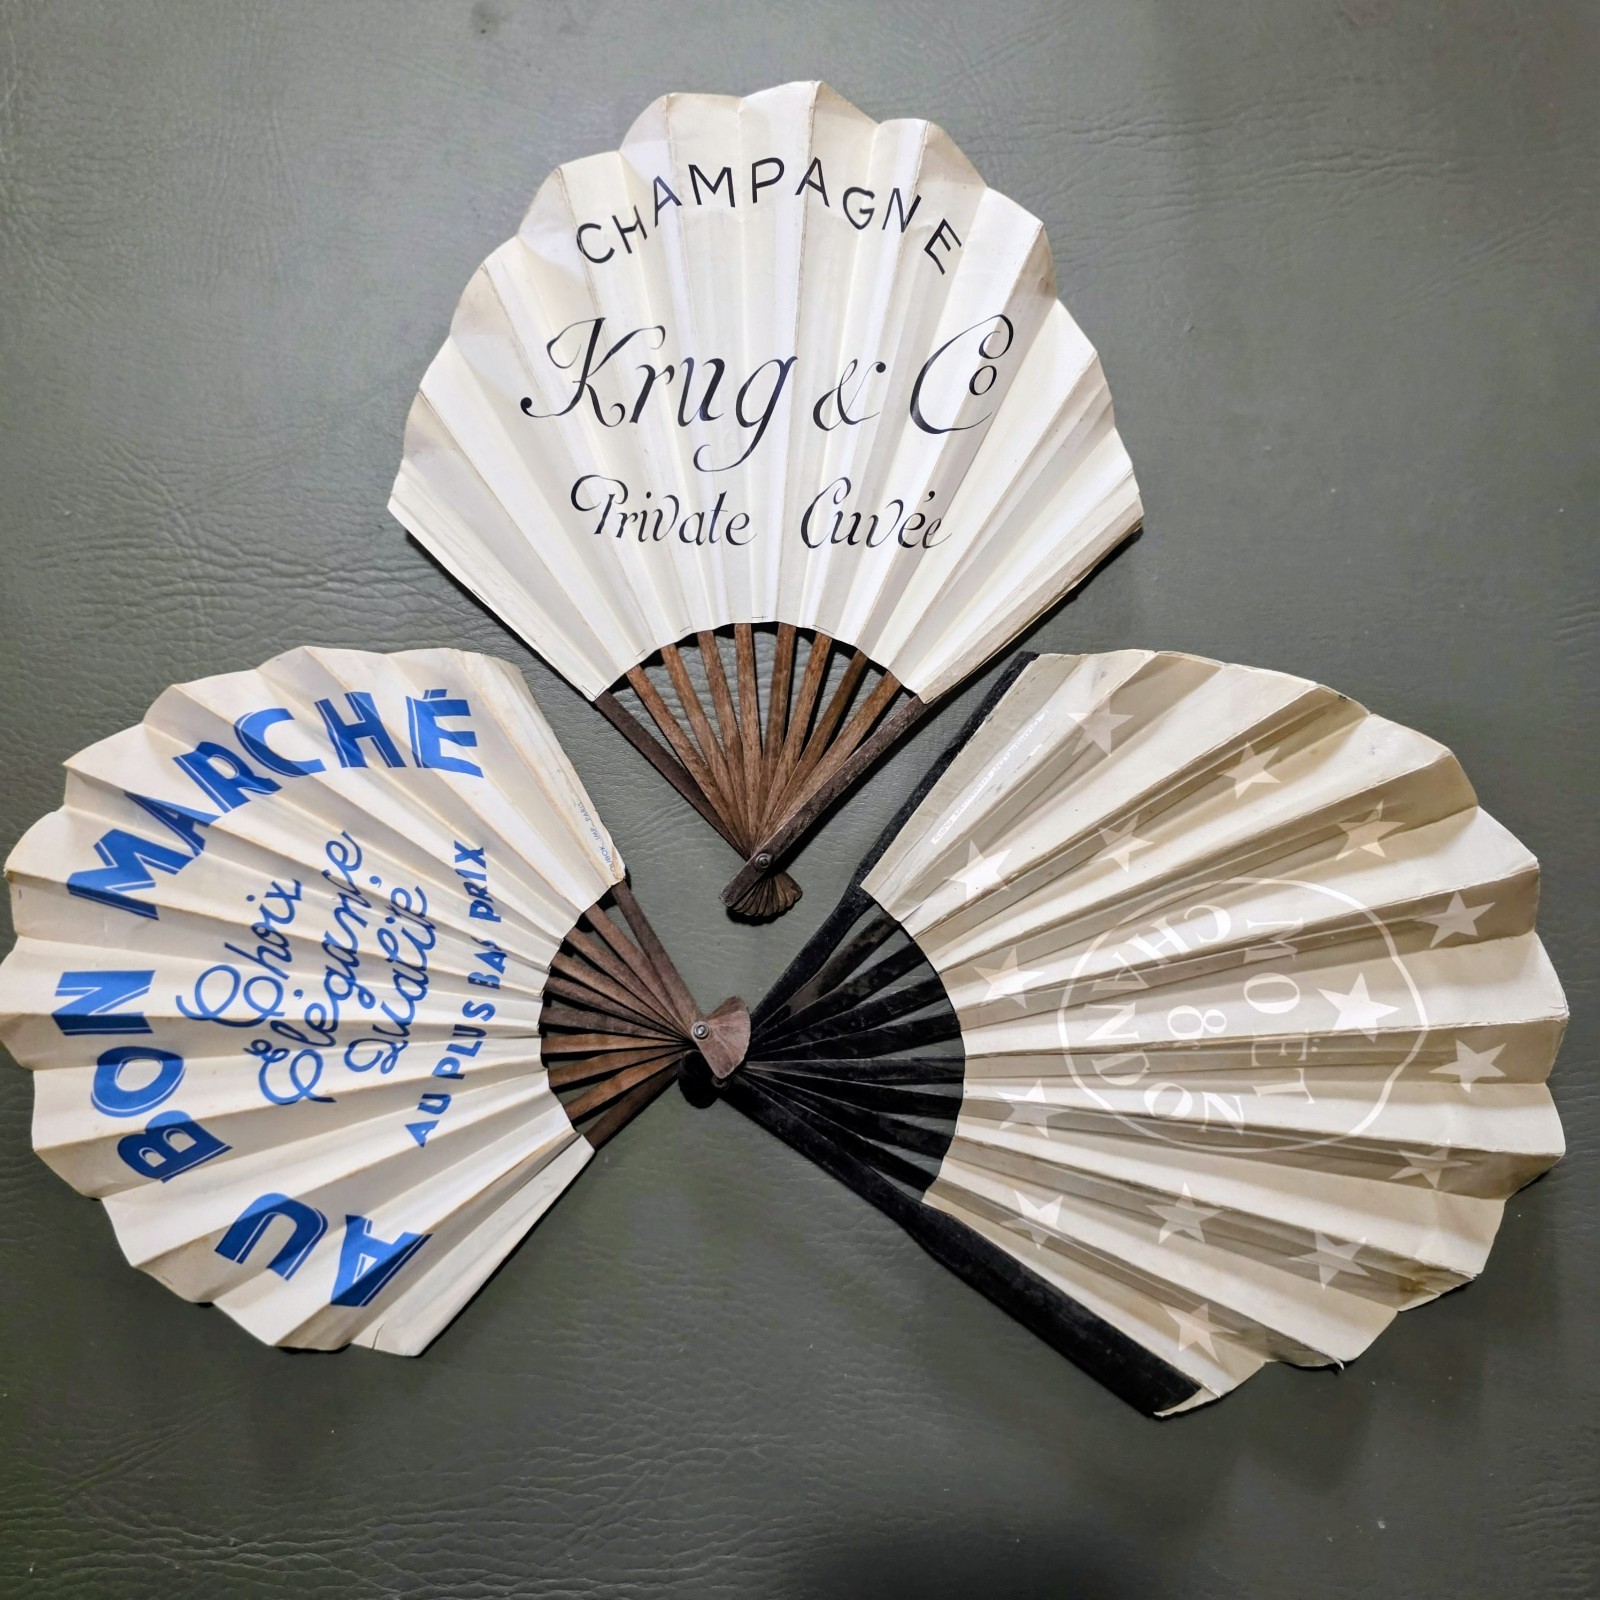 CHAMPAGNE
Krug & Co
Private Cuvée
AU BON MARCHÉ
Choix
Élégance
Qualité
AU PLUS BAS PRIX
MOËT
&
CHANDON